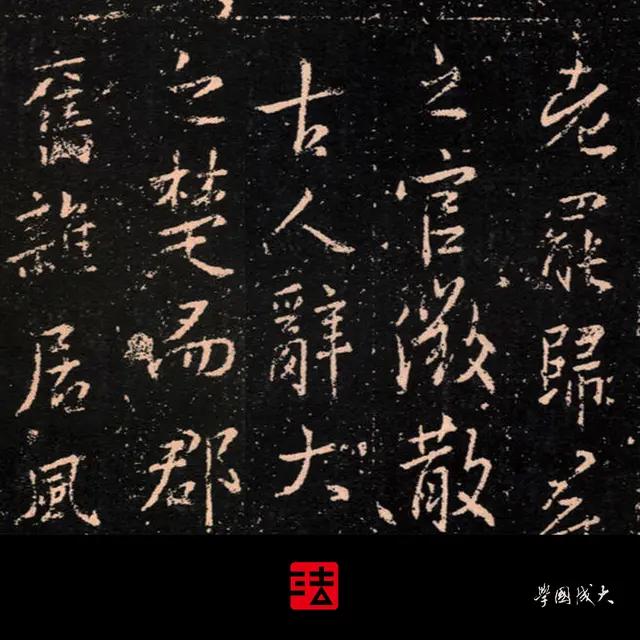 老罷歸
之官徵散
古人辭大
之楚郡
舊雖居風
法
大成國學